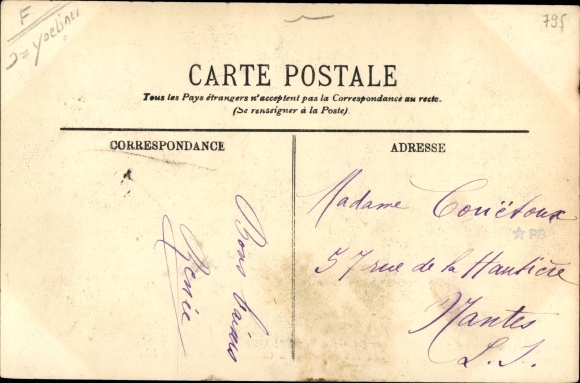 F
795
CARTE POSTALE
Tous les Pays étrangers n'acceptent pas la Correspondance au recto.
(Se renseigner à la Poste).
CORRESPONDANCE
ADRESSE
Bons baisers
Renée
Madame Couëtoux
57 rue de la Hautière
Nantes
L. I.
PB